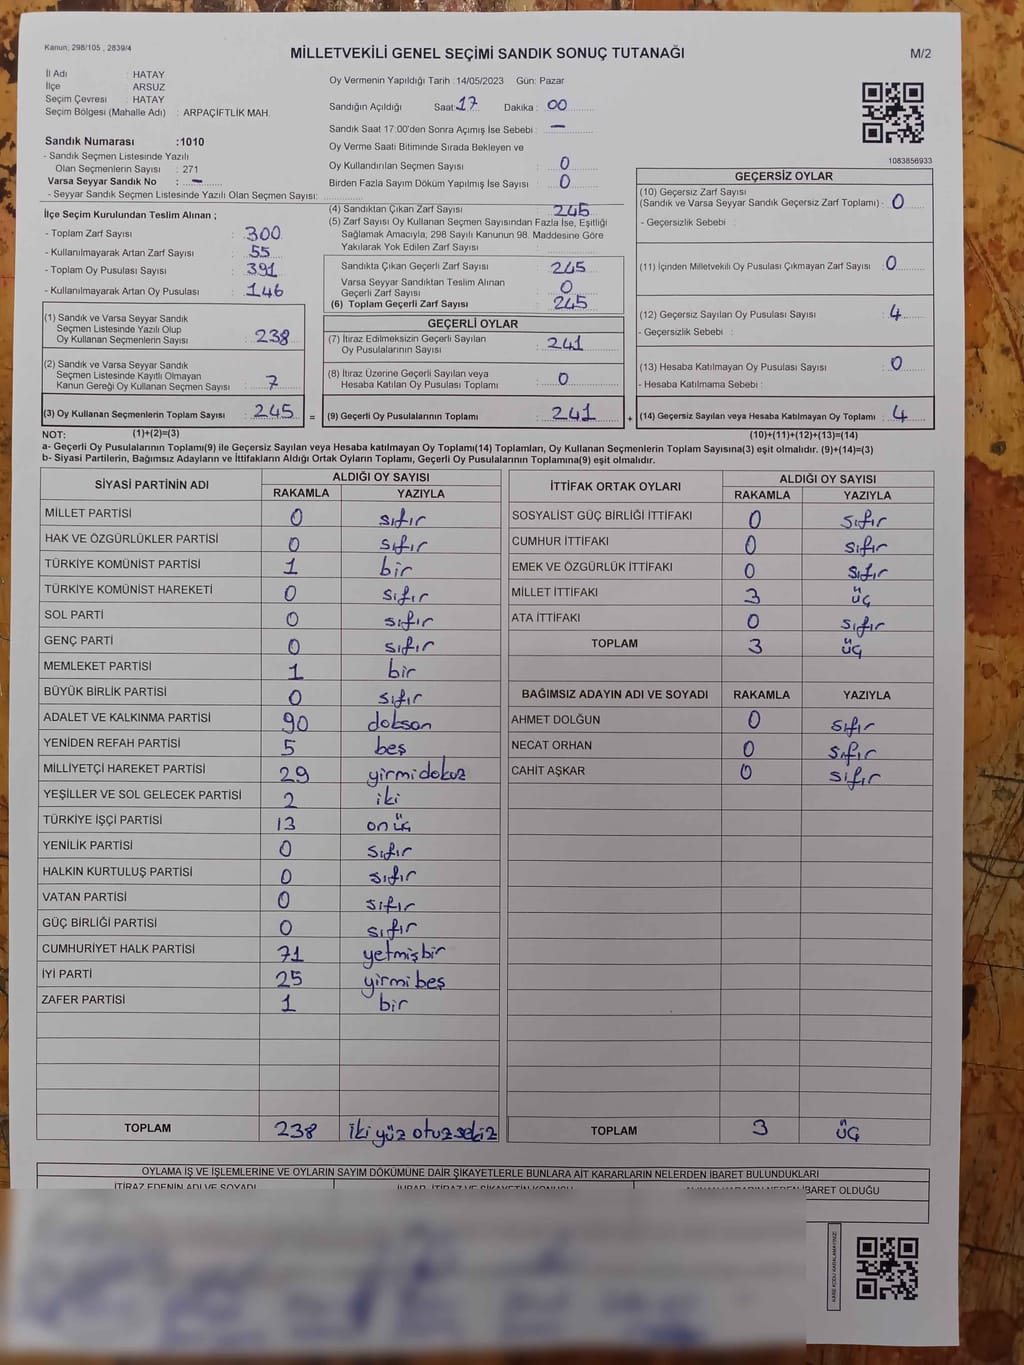 Kanun, 298/105 , 2839/4
MİLLETVEKİLİ GENEL SEÇİMİ SANDIK SONUÇ TUTANAĞI
M/2
İl Adı : HATAY
İlçe : ARSUZ
Seçim Çevresi : HATAY
Seçim Bölgesi (Mahalle Adı) : ARPAÇİFTLİK MAH.
Sandık Numarası :1010
- Sandık Seçmen Listesinde Yazılı
Olan Seçmenlerin Sayısı : 271
Varsa Seyyar Sandık No : -
- Seyyar Sandık Seçmen Listesinde Yazılı Olan Seçmen Sayısı:
Oy Vermenin Yapıldığı Tarih :14/05/2023 Gün: Pazar
Sandığın Açıldığı Saat 17 Dakika : 00
Sandık Saat 17:00'den Sonra Açımış İse Sebebi : -
Oy Verme Saati Bitiminde Sırada Bekleyen ve
Oy Kullandırılan Seçmen Sayısı : 0
Birden Fazla Sayım Döküm Yapılmış İse Sayısı : 0
1083856933
İlçe Seçim Kurulundan Teslim Alınan ;
- Toplam Zarf Sayısı : 300
- Kullanılmayarak Artan Zarf Sayısı : 55
- Toplam Oy Pusulası Sayısı : 391
- Kullanılmayarak Artan Oy Pusulası : 146
(1) Sandık ve Varsa Seyyar Sandık
Seçmen Listesinde Yazılı Olup
Oy Kullanan Seçmenlerin Sayısı : 238
(2) Sandık ve Varsa Seyyar Sandık
Seçmen Listesinde Kayıtlı Olmayan
Kanun Gereği Oy Kullanan Seçmen Sayısı : 7
(3) Oy Kullanan Seçmenlerin Toplam Sayısı : 245 =
(4) Sandıktan Çıkan Zarf Sayısı : 245
(5) Zarf Sayısı Oy Kullanan Seçmen Sayısından Fazla İse, Eşitliği
Sağlamak Amacıyla; 298 Sayılı Kanunun 98. Maddesine Göre
Yakılarak Yok Edilen Zarf Sayısı :
Sandıkta Çıkan Geçerli Zarf Sayısı : 245
Varsa Seyyar Sandıktan Teslim Alınan
Geçerli Zarf Sayısı : 0
(6) Toplam Geçerli Zarf Sayısı : 245
GEÇERLİ OYLAR
(7) İtiraz Edilmeksizin Geçerli Sayılan
Oy Pusulalarının Sayısı : 241
(8) İtiraz Üzerine Geçerli Sayılan veya
Hesaba Katılan Oy Pusulası Toplamı : 0
(9) Geçerli Oy Pusulalarının Toplamı : 241 +
GEÇERSİZ OYLAR
(10) Geçersiz Zarf Sayısı
(Sandık ve Varsa Seyyar Sandık Geçersiz Zarf Toplamı) : 0
- Geçersizlik Sebebi :
(11) İçinden Milletvekili Oy Pusulası Çıkmayan Zarf Sayısı : 0
(12) Geçersiz Sayılan Oy Pusulası Sayısı : 4
- Geçersizlik Sebebi :
(13) Hesaba Katılmayan Oy Pusulası Sayısı : 0
- Hesaba Katılmama Sebebi :
(14) Geçersiz Sayılan veya Hesaba Katılmayan Oy Toplamı : 4
NOT: (1)+(2)=(3) (10)+(11)+(12)+(13)=(14)
a- Geçerli Oy Pusulalarının Toplamı(9) ile Geçersiz Sayılan veya Hesaba katılmayan Oy Toplamı(14) Toplamları, Oy Kullanan Seçmenlerin Toplam Sayısına(3) eşit olmalıdır. (9)+(14)=(3)
b- Siyasi Partilerin, Bağımsız Adayların ve İttifakların Aldığı Ortak Oyların Toplamı, Geçerli Oy Pusulalarının Toplamına(9) eşit olmalıdır.
SİYASİ PARTİNİN ADI ALDIĞI OY SAYISI
RAKAMLA YAZIYLA
MİLLET PARTİSİ 0 sıfır
HAK VE ÖZGÜRLÜKLER PARTİSİ 0 sıfır
TÜRKİYE KOMÜNİST PARTİSİ 1 bir
TÜRKİYE KOMÜNİST HAREKETİ 0 sıfır
SOL PARTİ 0 sıfır
GENÇ PARTİ 0 sıfır
MEMLEKET PARTİSİ 1 bir
BÜYÜK BİRLİK PARTİSİ 0 sıfır
ADALET VE KALKINMA PARTİSİ 90 doksan
YENİDEN REFAH PARTİSİ 5 beş
MİLLİYETÇİ HAREKET PARTİSİ 29 yirmidokuz
YEŞİLLER VE SOL GELECEK PARTİSİ 2 iki
TÜRKİYE İŞÇİ PARTİSİ 13 onüç
YENİLİK PARTİSİ 0 sıfır
HALKIN KURTULUŞ PARTİSİ 0 sıfır
VATAN PARTİSİ 0 sıfır
GÜÇ BİRLİĞİ PARTİSİ 0 sıfır
CUMHURİYET HALK PARTİSİ 71 yetmişbir
İYİ PARTİ 25 yirmi beş
ZAFER PARTİSİ 1 bir
TOPLAM 238 iki yüz otuzsekiz
İTTİFAK ORTAK OYLARI ALDIĞI OY SAYISI
RAKAMLA YAZIYLA
SOSYALİST GÜÇ BİRLİĞİ İTTİFAKI 0 sıfır
CUMHUR İTTİFAKI 0 sıfır
EMEK VE ÖZGÜRLÜK İTTİFAKI 0 sıfır
MİLLET İTTİFAKI 3 üç
ATA İTTİFAKI 0 sıfır
TOPLAM 3 üç
BAĞIMSIZ ADAYIN ADI VE SOYADI RAKAMLA YAZIYLA
AHMET DOLĞUN 0 sıfır
NECAT ORHAN 0 sıfır
CAHİT AŞKAR 0 sıfır
TOPLAM 3 üç
OYLAMA İŞ VE İŞLEMLERİNE VE OYLARIN SAYIM DÖKÜMÜNE DAİR ŞİKAYETLERLE BUNLARA AİT KARARLARIN NELERDEN İBARET BULUNDUKLARI
İTİRAZ EDENİN ADI VE SOYADI
İBARET OLDUĞU